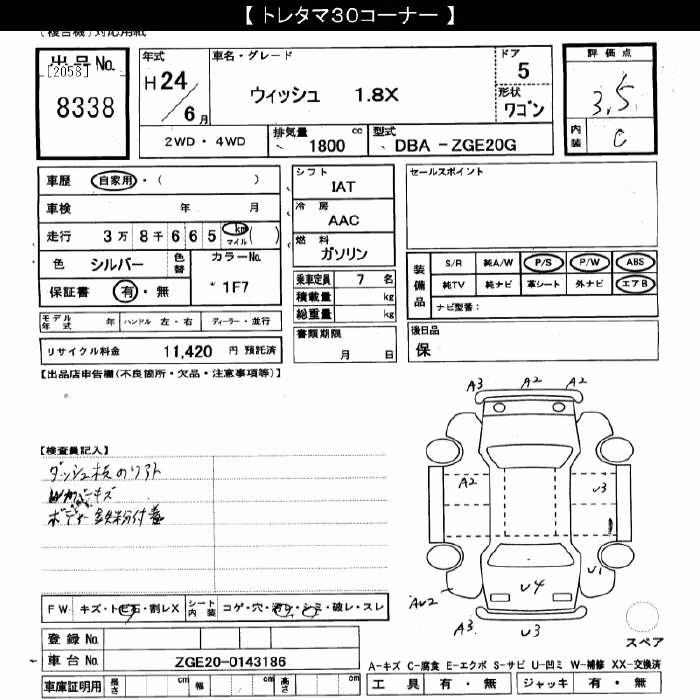 【 トレタマ30コーナー 】
(複合機)対応用紙
出品No.
[2058]
8338
年式
H 24 / 6 月
車名・グレード
ウィッシュ 1.8X
ドア
5
形状
ワゴン
評価点
3.5
内装
C
2WD・4WD
排気量
1800 cc
型式
DBA - ZGE20G
車歴 自家用・( )
車検 年 月
走行 3万 8千 6 6 5 km マイル ( )
色 シルバー 色替 カラーNo.
保証書 有・無 * 1F7
モデル年式 年 ハンドル 左・右 ディーラー・並行
リサイクル料金 11,420 円 預託済
シフト
IAT
冷房
AAC
燃料
ガソリン
乗車定員 7 名
積載量 kg
総重量 kg
書類期限
月 日
セールスポイント
装備品
S/R 純A/W P/S P/W ABS
純TV 純ナビ 革シート 外ナビ エアB
ナビ型番:
後日品
保
【出品店申告欄(不良箇所・欠品・注意事項等)】
【検査員記入】
ダッシュ板のリフト
キズ
ボディー鉄粉付着
A3 A2 A2
A2 U3
U1
AU2 U4
A3 U3
スペア
FW キズ・トビ石・割レX シート内装 コゲ・穴・汚レ・シミ・破レ・スレ
登録No.
車台No. ZGE20-0143186
車庫証明用 長さ cm 幅 cm 高さ cm
A-キズ C-腐食 E-エクボ S-サビ U-凹ミ W-補修 XX-交換済
工具 有・無 ジャッキ 有・無